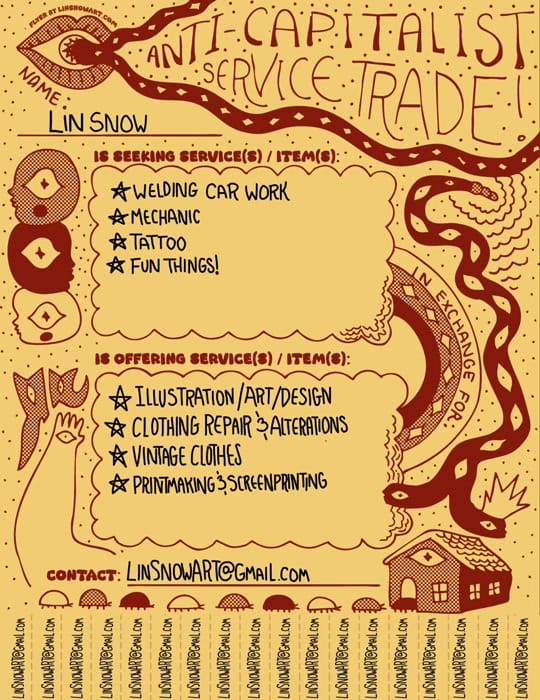 FLYER BY LINSNOWART.COM
ANTI-CAPITALIST
SERVICE TRADE!
NAME:
LIN SNOW
IS SEEKING SERVICE(S) / ITEM(S):
☆ WELDING CAR WORK
☆ MECHANIC
☆ TATTOO
☆ FUN THINGS!
IN EXCHANGE FOR:
IS OFFERING SERVICE(S) / ITEM(S):
☆ ILLUSTRATION/ART/DESIGN
☆ CLOTHING REPAIR & ALTERATIONS
☆ VINTAGE CLOTHES
☆ PRINTMAKING & SCREENPRINTING
CONTACT: LINSNOWART@GMAIL.COM
LINSNOWART@GMAIL.COM
LINSNOWART@GMAIL.COM
LINSNOWART@GMAIL.COM
LINSNOWART@GMAIL.COM
LINSNOWART@GMAIL.COM
LINSNOWART@GMAIL.COM
LINSNOWART@GMAIL.COM
LINSNOWART@GMAIL.COM
LINSNOWART@GMAIL.COM
LINSNOWART@GMAIL.COM
LINSNOWART@GMAIL.COM
LINSNOWART@GMAIL.COM
LINSNOWART@GMAIL.COM
LINSNOWART@GMAIL.COM
LINSNOWART@GMAIL.COM
LINSNOWART@GMAIL.COM